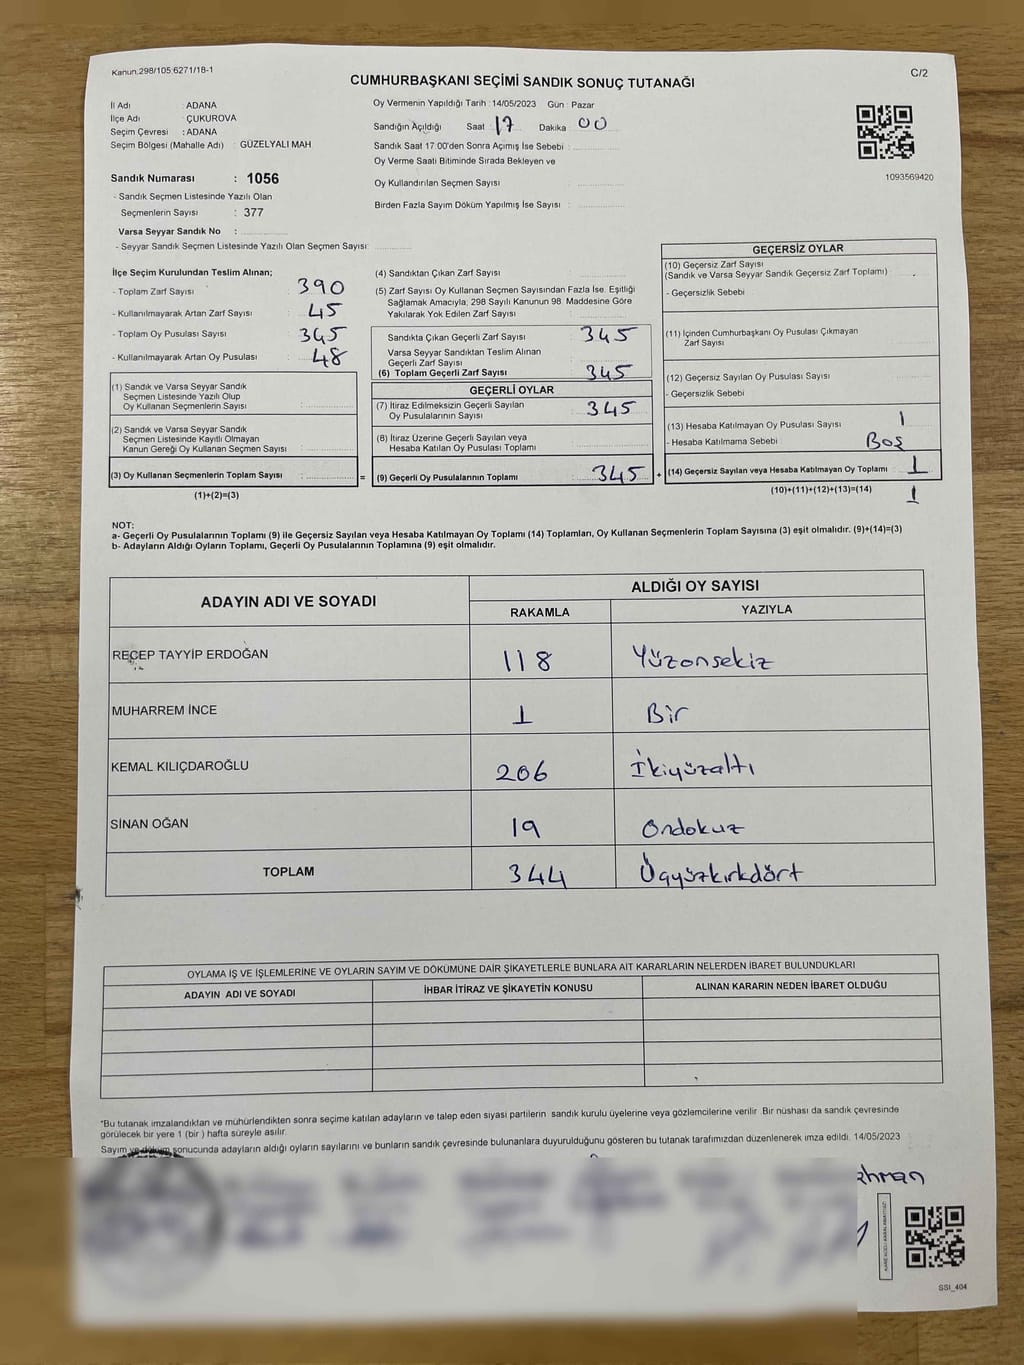 Kanun.298/105.6271/18-1
C/2
CUMHURBAŞKANI SEÇİMİ SANDIK SONUÇ TUTANAĞI
İl Adı : ADANA
İlçe Adı : ÇUKUROVA
Seçim Çevresi : ADANA
Seçim Bölgesi (Mahalle Adı) : GÜZELYALI MAH
Sandık Numarası : 1056
- Sandık Seçmen Listesinde Yazılı Olan
Seçmenlerin Sayısı : 377
Varsa Seyyar Sandık No :
- Seyyar Sandık Seçmen Listesinde Yazılı Olan Seçmen Sayısı:
Oy Vermenin Yapıldığı Tarih : 14/05/2023 Gün : Pazar
Sandığın Açıldığı Saat 17 Dakika 00
Sandık Saat 17:00'den Sonra Açımış İse Sebebi :
Oy Verme Saati Bitiminde Sırada Bekleyen ve
Oy Kullandırılan Seçmen Sayısı :
Birden Fazla Sayım Döküm Yapılmış İse Sayısı :
1093569420
İlçe Seçim Kurulundan Teslim Alınan;
- Toplam Zarf Sayısı : 390
- Kullanılmayarak Artan Zarf Sayısı : 45
- Toplam Oy Pusulası Sayısı : 345
- Kullanılmayarak Artan Oy Pusulası : 48
(1) Sandık ve Varsa Seyyar Sandık
Seçmen Listesinde Yazılı Olup
Oy Kullanan Seçmenlerin Sayısı :
(2) Sandık ve Varsa Seyyar Sandık
Seçmen Listesinde Kayıtlı Olmayan
Kanun Gereği Oy Kullanan Seçmen Sayısı :
(3) Oy Kullanan Seçmenlerin Toplam Sayısı : =
(1)+(2)=(3)
(4) Sandıktan Çıkan Zarf Sayısı :
(5) Zarf Sayısı Oy Kullanan Seçmen Sayısından Fazla İse. Eşitliği
Sağlamak Amacıyla, 298 Sayılı Kanunun 98. Maddesine Göre
Yakılarak Yok Edilen Zarf Sayısı :
Sandıkta Çıkan Geçerli Zarf Sayısı : 345
Varsa Seyyar Sandıktan Teslim Alınan
Geçerli Zarf Sayısı :
(6) Toplam Geçerli Zarf Sayısı : 345
GEÇERLİ OYLAR
(7) İtiraz Edilmeksizin Geçerli Sayılan
Oy Pusulalarının Sayısı : 345
(8) İtiraz Üzerine Geçerli Sayılan veya
Hesaba Katılan Oy Pusulası Toplamı :
(9) Geçerli Oy Pusulalarının Toplamı : 345 +
GEÇERSİZ OYLAR
(10) Geçersiz Zarf Sayısı
(Sandık ve Varsa Seyyar Sandık Geçersiz Zarf Toplamı) :
- Geçersizlik Sebebi
(11) İçinden Cumhurbaşkanı Oy Pusulası Çıkmayan
Zarf Sayısı :
(12) Geçersiz Sayılan Oy Pusulası Sayısı :
- Geçersizlik Sebebi
(13) Hesaba Katılmayan Oy Pusulası Sayısı : 1
- Hesaba Katılmama Sebebi : Boş
(14) Geçersiz Sayılan veya Hesaba Katılmayan Oy Toplamı : 1
(10)+(11)+(12)+(13)=(14) 1
NOT:
a- Geçerli Oy Pusulalarının Toplamı (9) ile Geçersiz Sayılan veya Hesaba Katılmayan Oy Toplamı (14) Toplamları, Oy Kullanan Seçmenlerin Toplam Sayısına (3) eşit olmalıdır. (9)+(14)=(3)
b- Adayların Aldığı Oyların Toplamı, Geçerli Oy Pusulalarının Toplamına (9) eşit olmalıdır.
ADAYIN ADI VE SOYADI ALDIĞI OY SAYISI
RAKAMLA YAZIYLA
RECEP TAYYİP ERDOĞAN 118 Yüzonsekiz
MUHARREM İNCE 1 Bir
KEMAL KILIÇDAROĞLU 206 İkiyüzaltı
SİNAN OĞAN 19 Ondokuz
TOPLAM 344 Üçyüzkırkdört
OYLAMA İŞ VE İŞLEMLERİNE VE OYLARIN SAYIM VE DÖKÜMÜNE DAİR ŞİKAYETLERLE BUNLARA AİT KARARLARIN NELERDEN İBARET BULUNDUKLARI
ADAYIN ADI VE SOYADI İHBAR İTİRAZ VE ŞİKAYETİN KONUSU ALINAN KARARIN NEDEN İBARET OLDUĞU
*Bu tutanak imzalandıktan ve mühürlendikten sonra seçime katılan adayların ve talep eden siyasi partilerin sandık kurulu üyelerine veya gözlemcilerine verilir Bir nüshası da sandık çevresinde
görülecek bir yere 1 (bir ) hafta süreyle asılır.
Sayım ve döküm sonucunda adayların aldığı oyların sayılarını ve bunların sandık çevresinde bulunanlara duyurulduğunu gösteren bu tutanak tarafımızdan düzenlenerek imza edildi. 14/05/2023
SSI_404